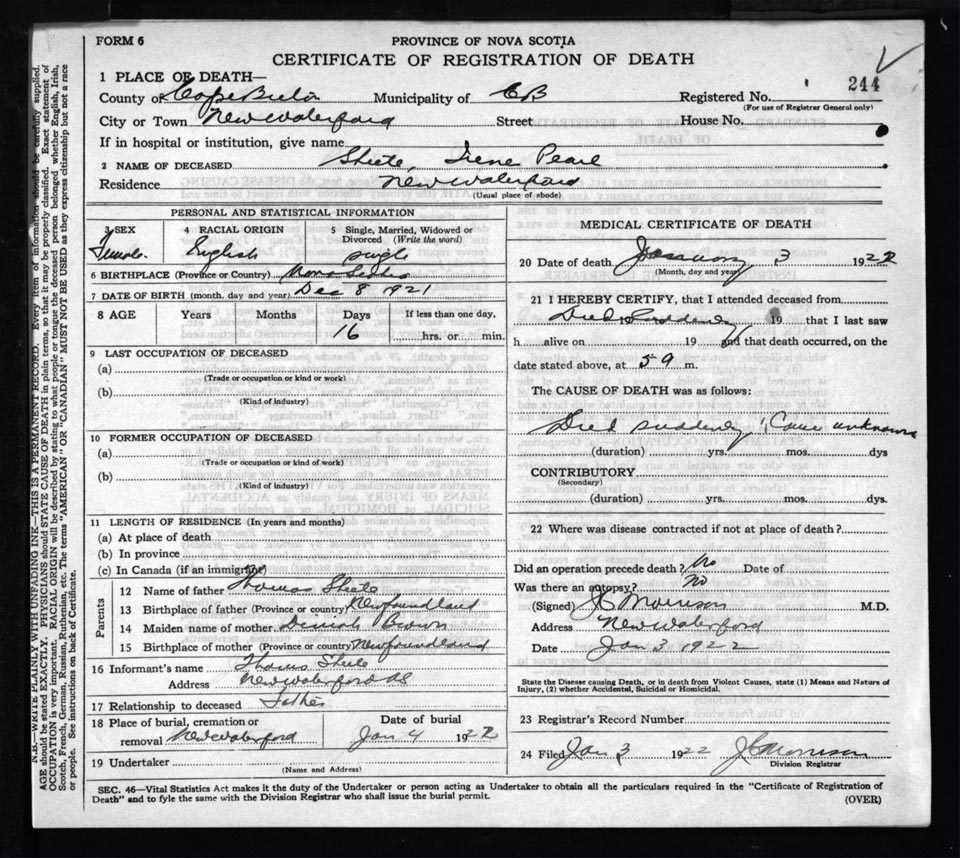 FORM 6
PROVINCE OF NOVA SCOTIA
CERTIFICATE OF REGISTRATION OF DEATH
1 PLACE OF DEATH—
County of Cape Breton Municipality of CB Registered No. 244
(For use of Registrar General only)
City or Town New Waterford Street House No.
If in hospital or institution, give name
2 NAME OF DECEASED Irene Pearl
Residence New Waterford
(Usual place of abode)
PERSONAL AND STATISTICAL INFORMATION
3 SEX 4 RACIAL ORIGIN 5 Single, Married, Widowed or
Divorced (Write the word)
Female English single
6 BIRTHPLACE (Province or Country) Nova Scotia
7 DATE OF BIRTH (month, day and year) Dec 8 1921
8 AGE Years Months Days If less than one day,
16 hrs. or min.
9 LAST OCCUPATION OF DECEASED
(a)
(Trade or occupation or kind or work)
(b)
(Kind of industry)
10 FORMER OCCUPATION OF DECEASED
(a)
(Trade or occupation or kind or work)
(b)
(Kind of industry)
11 LENGTH OF RESIDENCE (In years and months)
(a) At place of death
(b) In province
(c) In Canada (if an immigrant)
Parents
12 Name of father Thomas
13 Birthplace of father (Province or country) Newfoundland
14 Maiden name of mother Brown
15 Birthplace of mother (Province or country) Newfoundland
16 Informant's name Thomas
Address New Waterford
17 Relationship to deceased Father
18 Place of burial, cremation or Date of burial
removal New Waterford Jan 4 1922
19 Undertaker
(Name and Address)
MEDICAL CERTIFICATE OF DEATH
20 Date of death January 3 1922
(Month, day and year)
21 I HEREBY CERTIFY, that I attended deceased from
Died Suddenly 19 that I last saw
h alive on 19 and that death occurred, on the
date stated above, at 5 9 m.
The CAUSE OF DEATH was as follows:
Died suddenly, Cause unknown
(duration) yrs. mos. dys
CONTRIBUTORY
(Secondary)
(duration) yrs. mos. dys.
22 Where was disease contracted if not at place of death?
Did an operation precede death? No Date of
Was there an autopsy? No
(Signed) JC Morrison M.D.
Address New Waterford
Date Jan 3 1922
State the Disease causing Death, or in death from Violent Causes, state (1) Means and Nature of
Injury, (2) whether Accidental, Suicidal or Homicidal.
23 Registrar's Record Number
24 Filed Jan 3 1922 JC Morrison
Division Registrar
SEC. 46—Vital Statistics Act makes it the duty of the Undertaker or person acting as Undertaker to obtain all the particulars required in the "Certificate of Registration of
Death" and to fyle the same with the Division Registrar who shall issue the burial permit.
(OVER)
N.B.—WRITE PLAINLY WITH UNFADING INK—THIS IS A PERMANENT RECORD. Every item of information should be carefully supplied.
AGE should be stated EXACTLY. PHYSICIANS should STATE CAUSE OF DEATH in plain terms, so that it may be properly classified. Exact statement of
OCCUPATION is very important. RACIAL ORIGIN will be described by stating to what people or tongue the deceased person belonged whether English, Irish,
Scotch, French, German, Russian, Ruthenian, etc. The terms "AMERICAN" OR "CANADIAN" MUST NOT BE USED as they express citizenship but not a race
or people. See instructions on back of Certificate.